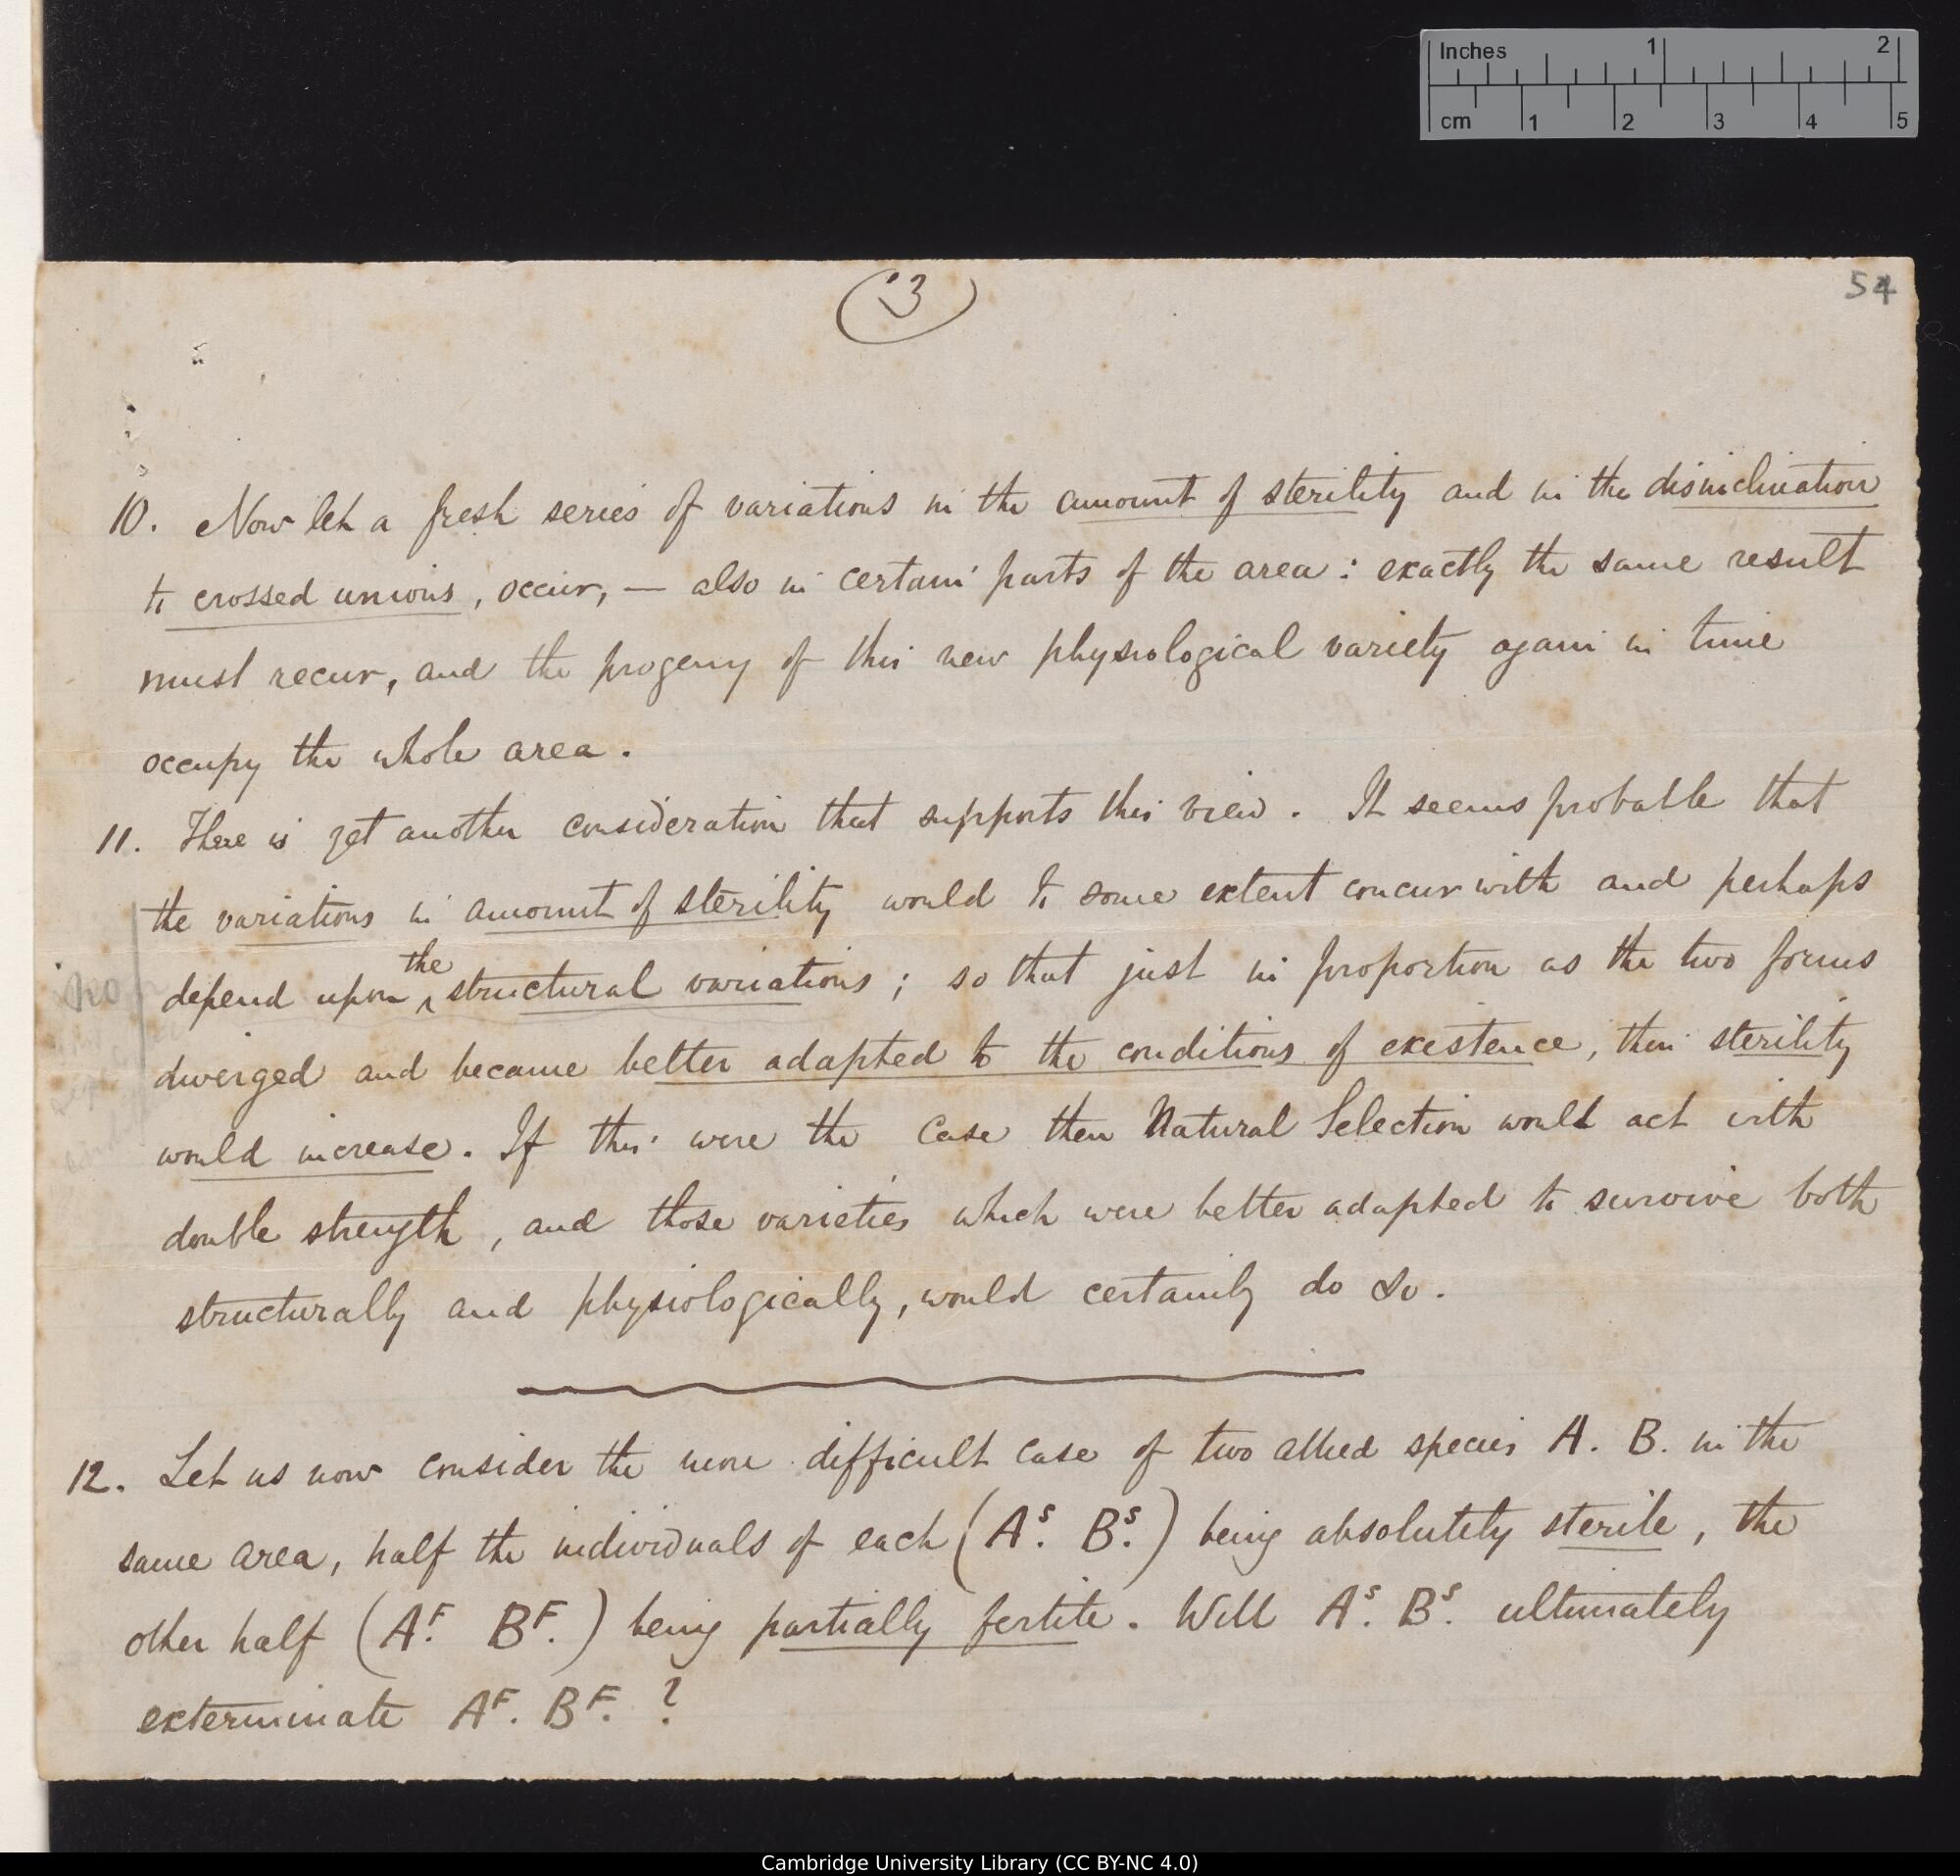 Inches 1 2
cm 1 2 3 4 5
3
54
10. Now let a fresh series of variations in the amount of sterility and in the disinclination
to crossed unions, occur, — also in certain parts of the area: exactly the same result
must recur, and the progeny of this new physiological variety again in time
occupy the whole area.
11. There is yet another consideration that supports this view. It seems probable that
the variations in amount of sterility would to some extent concur with and perhaps
the
depend upon ^ structural variations; so that just in proportion as the two forms
No
diverged and became better adapted to the conditions of existence, their sterility
would increase. If this were the case then Natural Selection would act with
double strength, and those varieties which were better adapted to survive both
structurally and physiologically, would certainly do so.
12. Let us now consider the more difficult case of two allied species A. B. in the
same area, half the individuals of each (Aˢ. Bˢ.) being absolutely sterile, the
other half (Aᶠ. Bᶠ.) being partially fertile. Will Aˢ. Bˢ. ultimately
exterminate Aᶠ. Bᶠ. ?
Cambridge University Library (CC BY-NC 4.0)